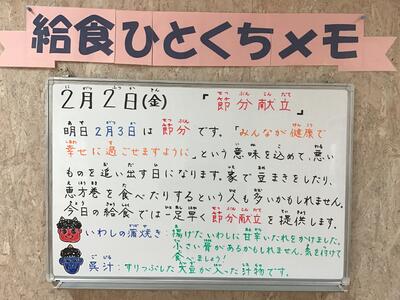 給食ひとくちメモ
2月2日(金) 「節分献立」
明日2月3日は節分です。「みんなが健康で
幸せに過ごせますように」という意味を込めて、悪い
ものを追い出す日になります。家で豆まきをしたり、
恵方巻を食べたりするという人も多いかもしれません。
今日の給食では一足早く節分献立を提供します。
いわしの蒲焼き:揚げたいわしに甘辛いたれをかけました。
小さい骨があるかもしれません。気を付けて
食べましょう!
呉汁:すりつぶした大豆が入った汁物です。